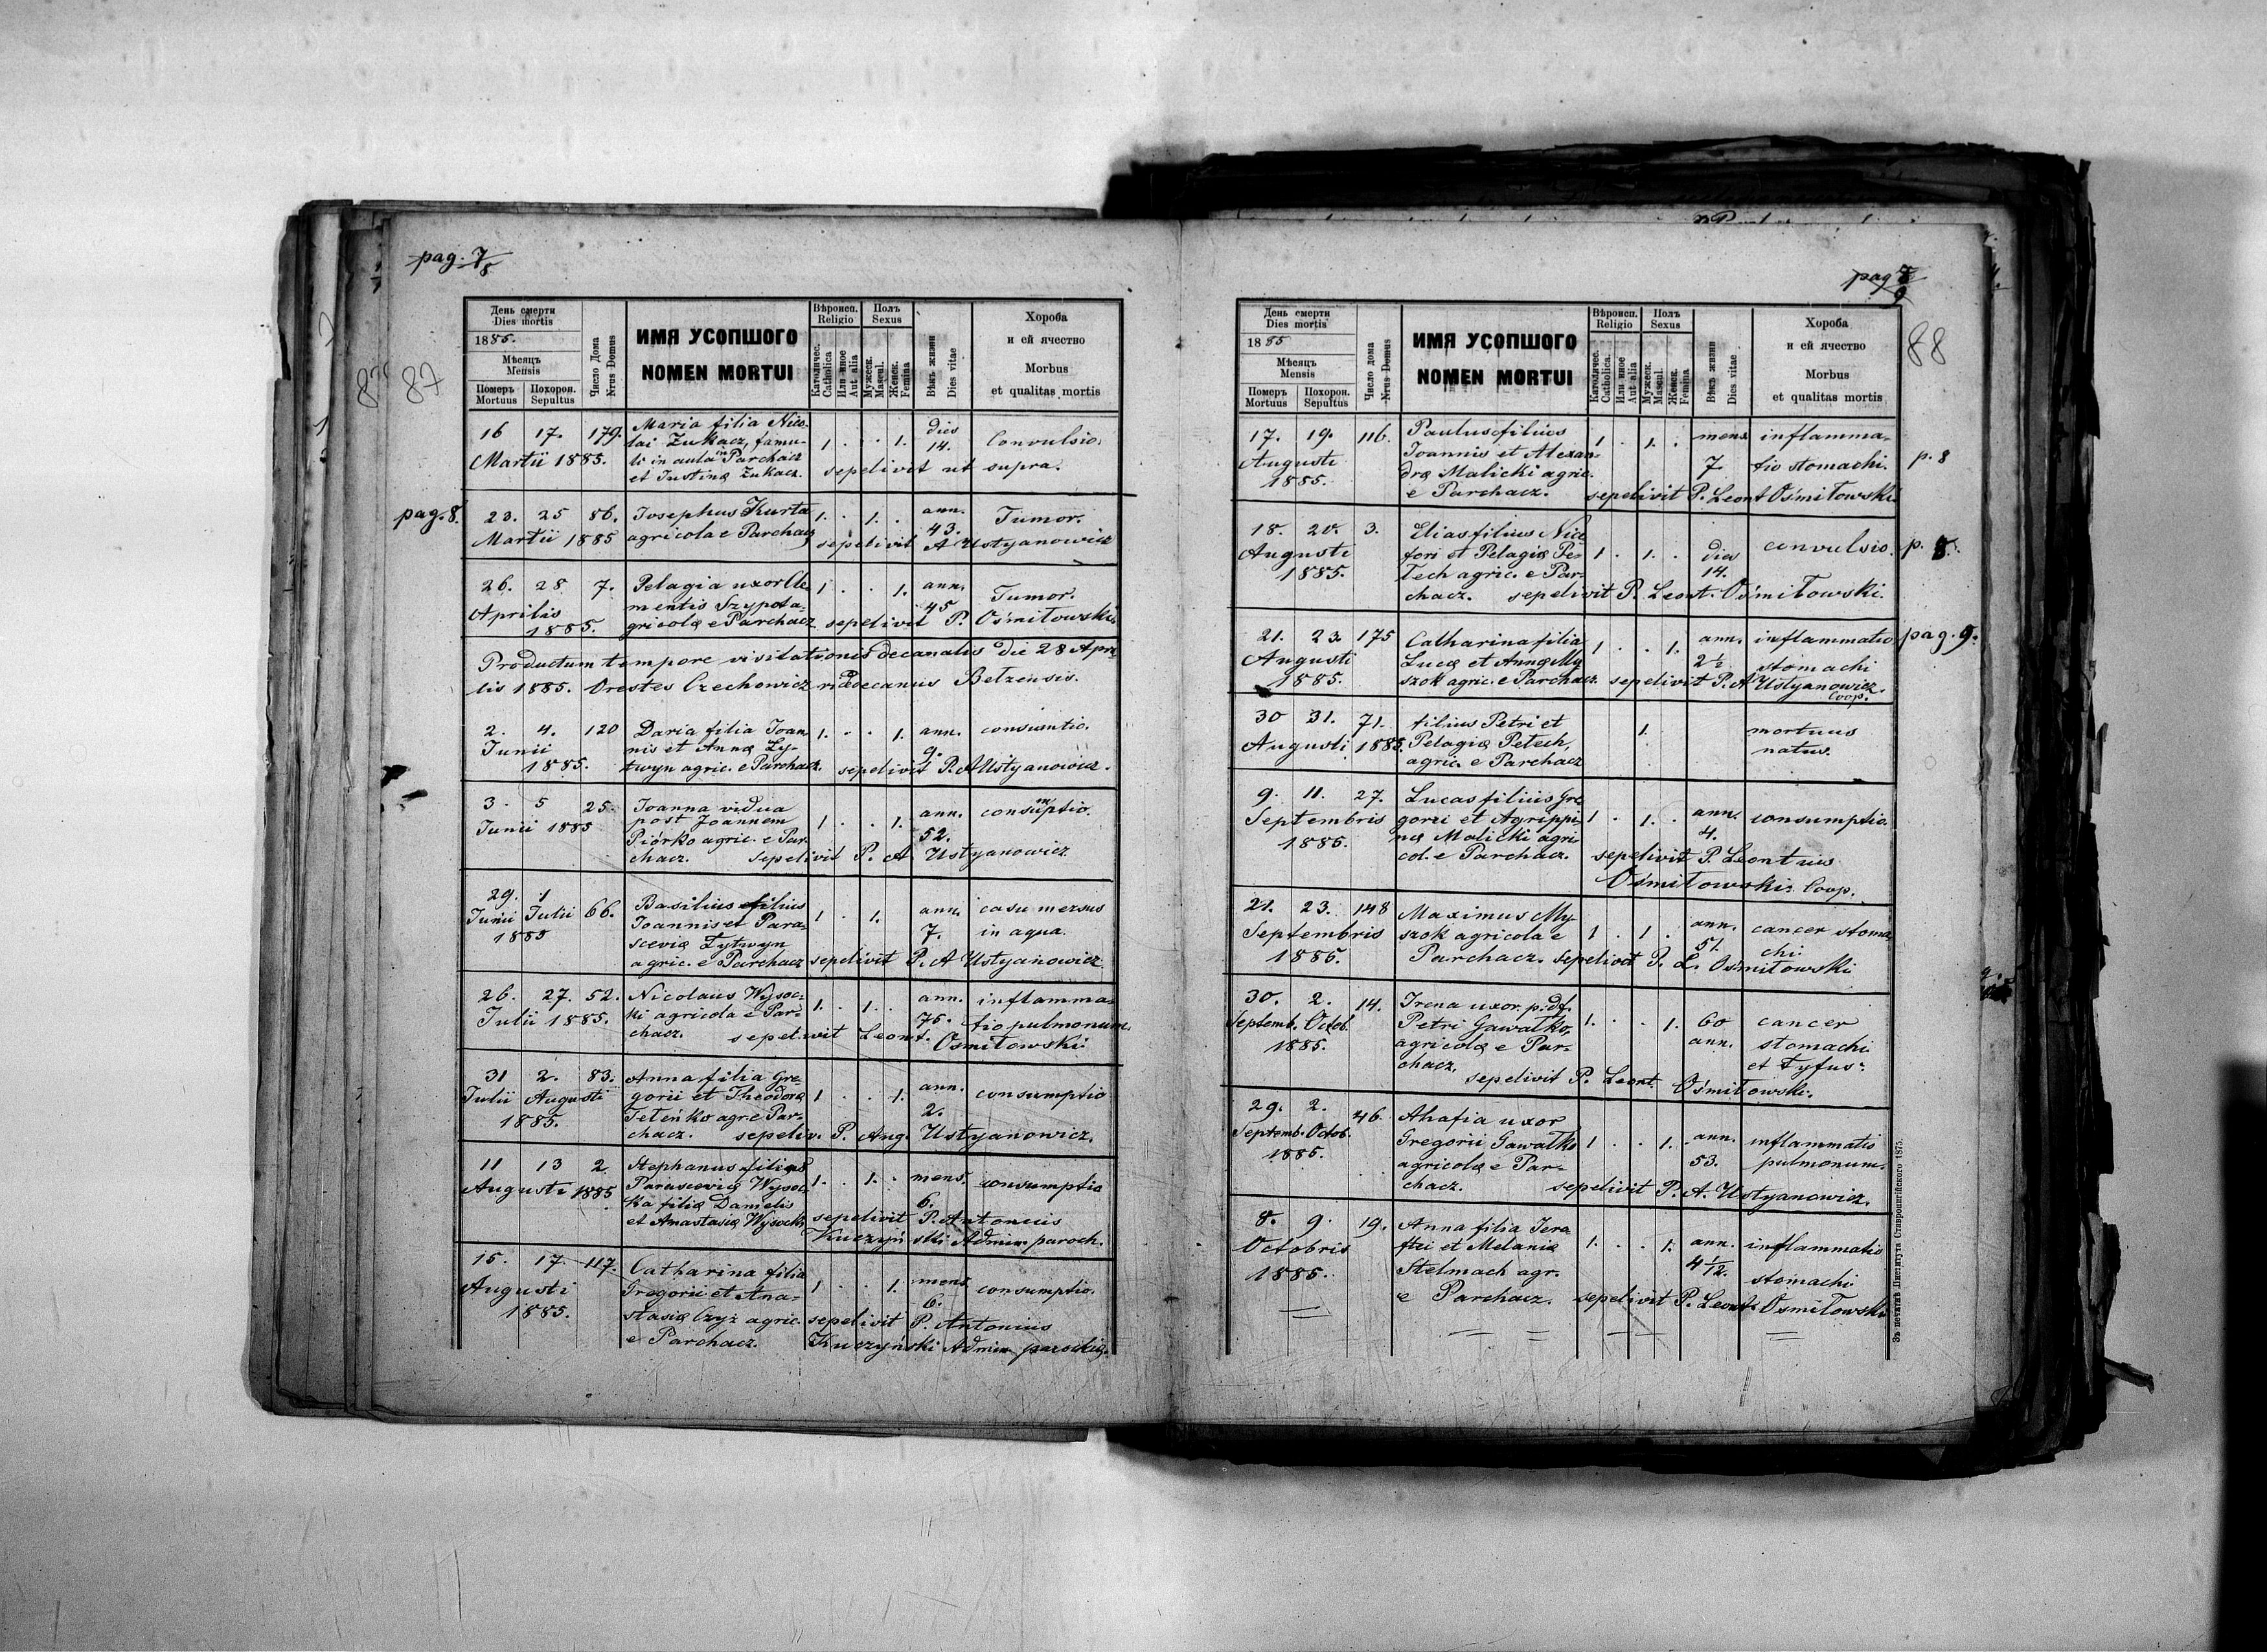 pag. 7/8
87
День смерти
Dies mortis
1885.
Мѣсяцъ
Mensis
Померъ
Mortuus
Похорон.
Sepultus
Число Дома
Nrus Domus
ИМЯ УСОПШОГО
NOMEN MORTUI
Вѣроисп.
Religio
Католичес.
Catholica
Или иное
Aut alia
Полъ
Sexus
Мужеск.
Mascul.
Женск.
Femina
Вѣкъ жизни
Dies vitae
Хороба
и ей ячество
Morbus
et qualitas mortis
16 17. 179. Maria filia Nico-
lai Zukacz, famu-
li in aula in Parchacz
et Justinæ Zukacz.
Martii 1885.
1 . . 1. dies 14. Convulsio.
sepelivit ut supra.
pag. 8.
23. 25 86. Josephus Kurta
agricola e Parchacz
Martii 1885
1. . 1. . ann. 43. Tumor.
sepelivit A Ustyanowicz
26. 28 7. Pelagia uxor Cle
mentis Szypot a-
gricolæ e Parchacz
Aprilis
1885.
1 . . 1. ann. 45 Tumor.
sepelivit P. Ośmiłowski.
Productum tempore visitationis decanalis die 28 Apri-
lis 1885. Orestes Czechowicz vicedecanus Belzensis.
2. 4. 120 Daria filia Joan
nis et Annæ Ly-
twyn agric. e Parchacz.
Junii
1885.
1. . . 1. ann. 9.
sepelivit P. A Ustyanowicz.
3. 5 25. Joanna vidua
post Joannem
Piórko agric. e Par-
chacz.
Junii 1885
1 . . 1. ann. 52. consumptio.
sepelivit P. A. Ustyanowicz.
29. 1 66. Basilius filius
Joannis et Para-
sceviæ Lytwyn
agric. e Parchacz
Junii Julii
1885
1 . 1. ann. 7. casu mersus
in aqua.
sepelivit P. A Ustyanowicz
26. 27. 52. Nicolaus Wysoc-
ki agricola e Par-
chacz.
Julii 1885.
1. . 1. . ann. 75. inflamma-
tio pulmonum.
sepelivit Leont. Ośmiłowski.
31 2. 83. Anna filia Gre-
gorii et Theodoræ
Teteńko agr. e Par-
chacz.
Julii Augusti
1885.
1 . . 1. ann. 2. consumptio
sepeliv. P. Ang. Ustyanowicz.
11 13 2 Stephanus filius
Parasceviæ Wysoc
ka filiæ Danielis
et Anastasiæ Wysocki
Augusti 1885
1. . 1. . mens. 6. consumptio
sepelivit P. Antonius
Kuczyński Admin. paroch.
15. 17. 117. Catharina filia
Gregorii et Ana-
stasiæ Czyz agric.
e Parchacz.
Augusti
1885.
1 . . 1. mens. 6. consumptio.
sepelivit P. Antonius
Kuczyński Admin
pag 9
88
День смерти
Dies mortis
1885
Мѣсяцъ
Mensis
Померъ
Mortuus
Похорон.
Sepultus
Число дома
Nrus Domus
ИМЯ УСОПШОГО
NOMEN MORTUI
Вѣроисп.
Religio
Католичес.
Catholica.
Или иное
Aut alia
Полъ
Sexus
Мужеск.
Mascul.
Женск.
Femina
Вѣкъ жизни
Dies vitae
Хороба
и ей ячество
Morbus
et qualitas mortis
17. 19. 116. Paulus filius
Joannis et Alexan-
dræ Malicki agric.
e Parchacz.
Augusti
1885.
1 . 1. . mens 7. inflamma-
tio stomachi. p. 8
sepelivit P. Leont Ośmiłowski
18. 20. 3. Elias filius Nice
fori et Pelagiæ Pe-
tech agric. e Par-
chacz.
Augusti
1885.
1 . 1. . dies 14. convulsio. p. 8.
sepelivit P. Leont. Ośmiłowski.
21. 23. 175 Catharina filia
Lucæ et Annæ My
szok agric. e Parchacz.
Augusti
1885.
1 . . 1. ann. 2½ inflammatio
stomachi
pag. 9.
sepelivit P. A Ustyanowicz.
Coop.
30 31. 71. filius Petri et
Pelagiæ Petech,
agric. e Parchacz
Augusti 1885.
1. mortuus
natus.
9. 11. 27. Lucas filius Gre
gorii et Agrippi-
næ Malicki agri-
col. e Parchacz.
Septembris
1885.
1 . 1. . ann. 4. consumptio.
sepelivit P. Leontius
Ośmiłowski Coop.
21. 23. 148 Maximus My-
szok agricola e
Parchacz.
Septembris
1885.
1 . 1 . ann. 51. cancer stoma
chi.
sepelivit P. L. Ośmiłowski
30. 2. 14. Irena uxor p. df.
Petri Gawałko,
agricolæ e Par-
chacz,
Septemb. Octob.
1885.
1. . . 1. 60 ann. cancer
stomachi
et tyfus.
sepelivit P. Leont. Ośmiłowski.
29. 2. 46. Ahafia uxor
Gregorii Gawałko
agricolæ e Par-
chacz.
Septemb. Octob.
1885.
1 . . 1. ann. 53. inflammatio
pulmonum.
sepelivit P. A. Ustyanowicz.
8. 9. 19. Anna filia Jera
ftei et Melaniæ
Stelmach agr.
e Parchacz.
Octobris
1885.
1. . . 1. ann. 4 1/12. inflammatio
stomachi
sepelivit P. Leont. Ośmiłowski
Зъ печатнѣ Института Ставропигійского 1875.